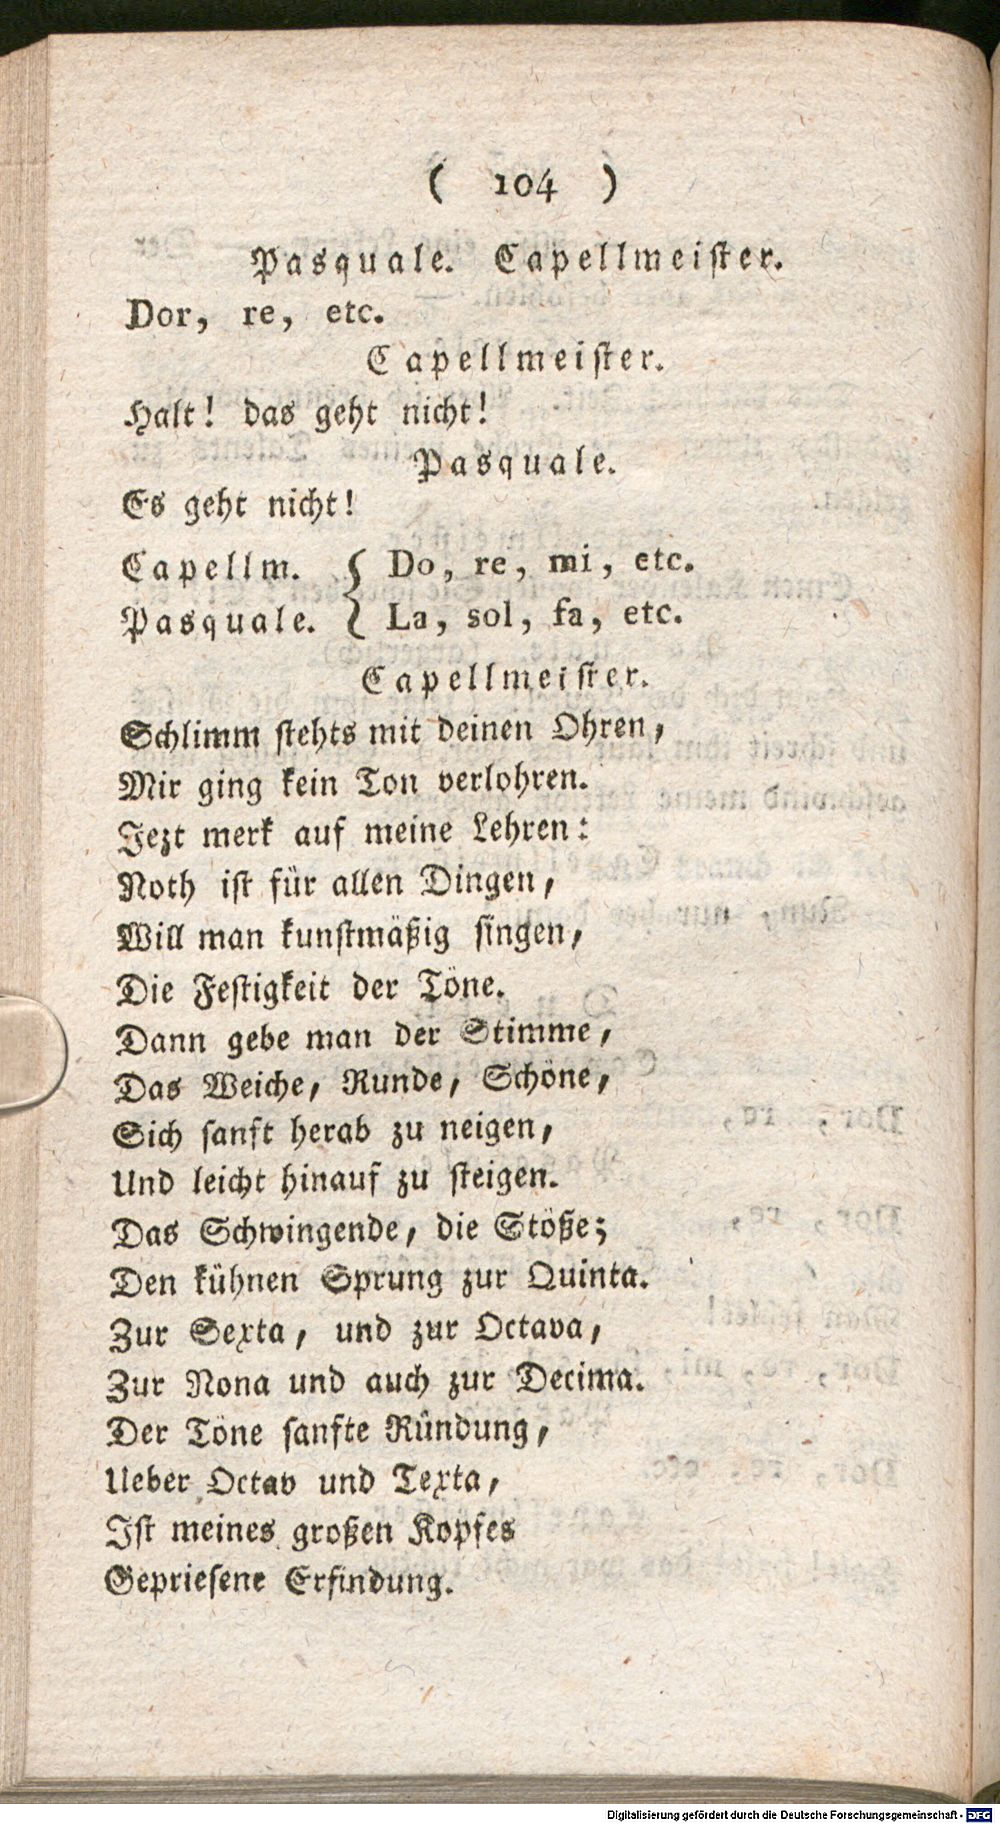 ( 104 )
Pasquale. Capellmeister.
Dor, re, etc.
Capellmeister.
Halt! das geht nicht!
Pasquale.
Es geht nicht!
Capellm. { Do, re, mi, etc.
Pasquale. { La, sol, fa, etc.
Capellmeister.
Schlimm stehts mit deinen Ohren,
Mir ging kein Ton verlohren.
Jezt merk auf meine Lehren:
Noth ist für allen Dingen,
Will man kunstmäßig singen,
Die Festigkeit der Töne.
Dann gebe man der Stimme,
Das Weiche, Runde, Schöne,
Sich sanft herab zu neigen,
Und leicht hinauf zu steigen.
Das Schwingende, die Stöße;
Den kühnen Sprung zur Quinta.
Zur Sexta, und zur Octava,
Zur Nona und auch zur Decima.
Der Töne sanfte Ründung,
Ueber Octav und Texta,
Ist meines großen Kopfes
Gepriesene Erfindung.
Digitalisierung gefördert durch die Deutsche Forschungsgemeinschaft - DFG